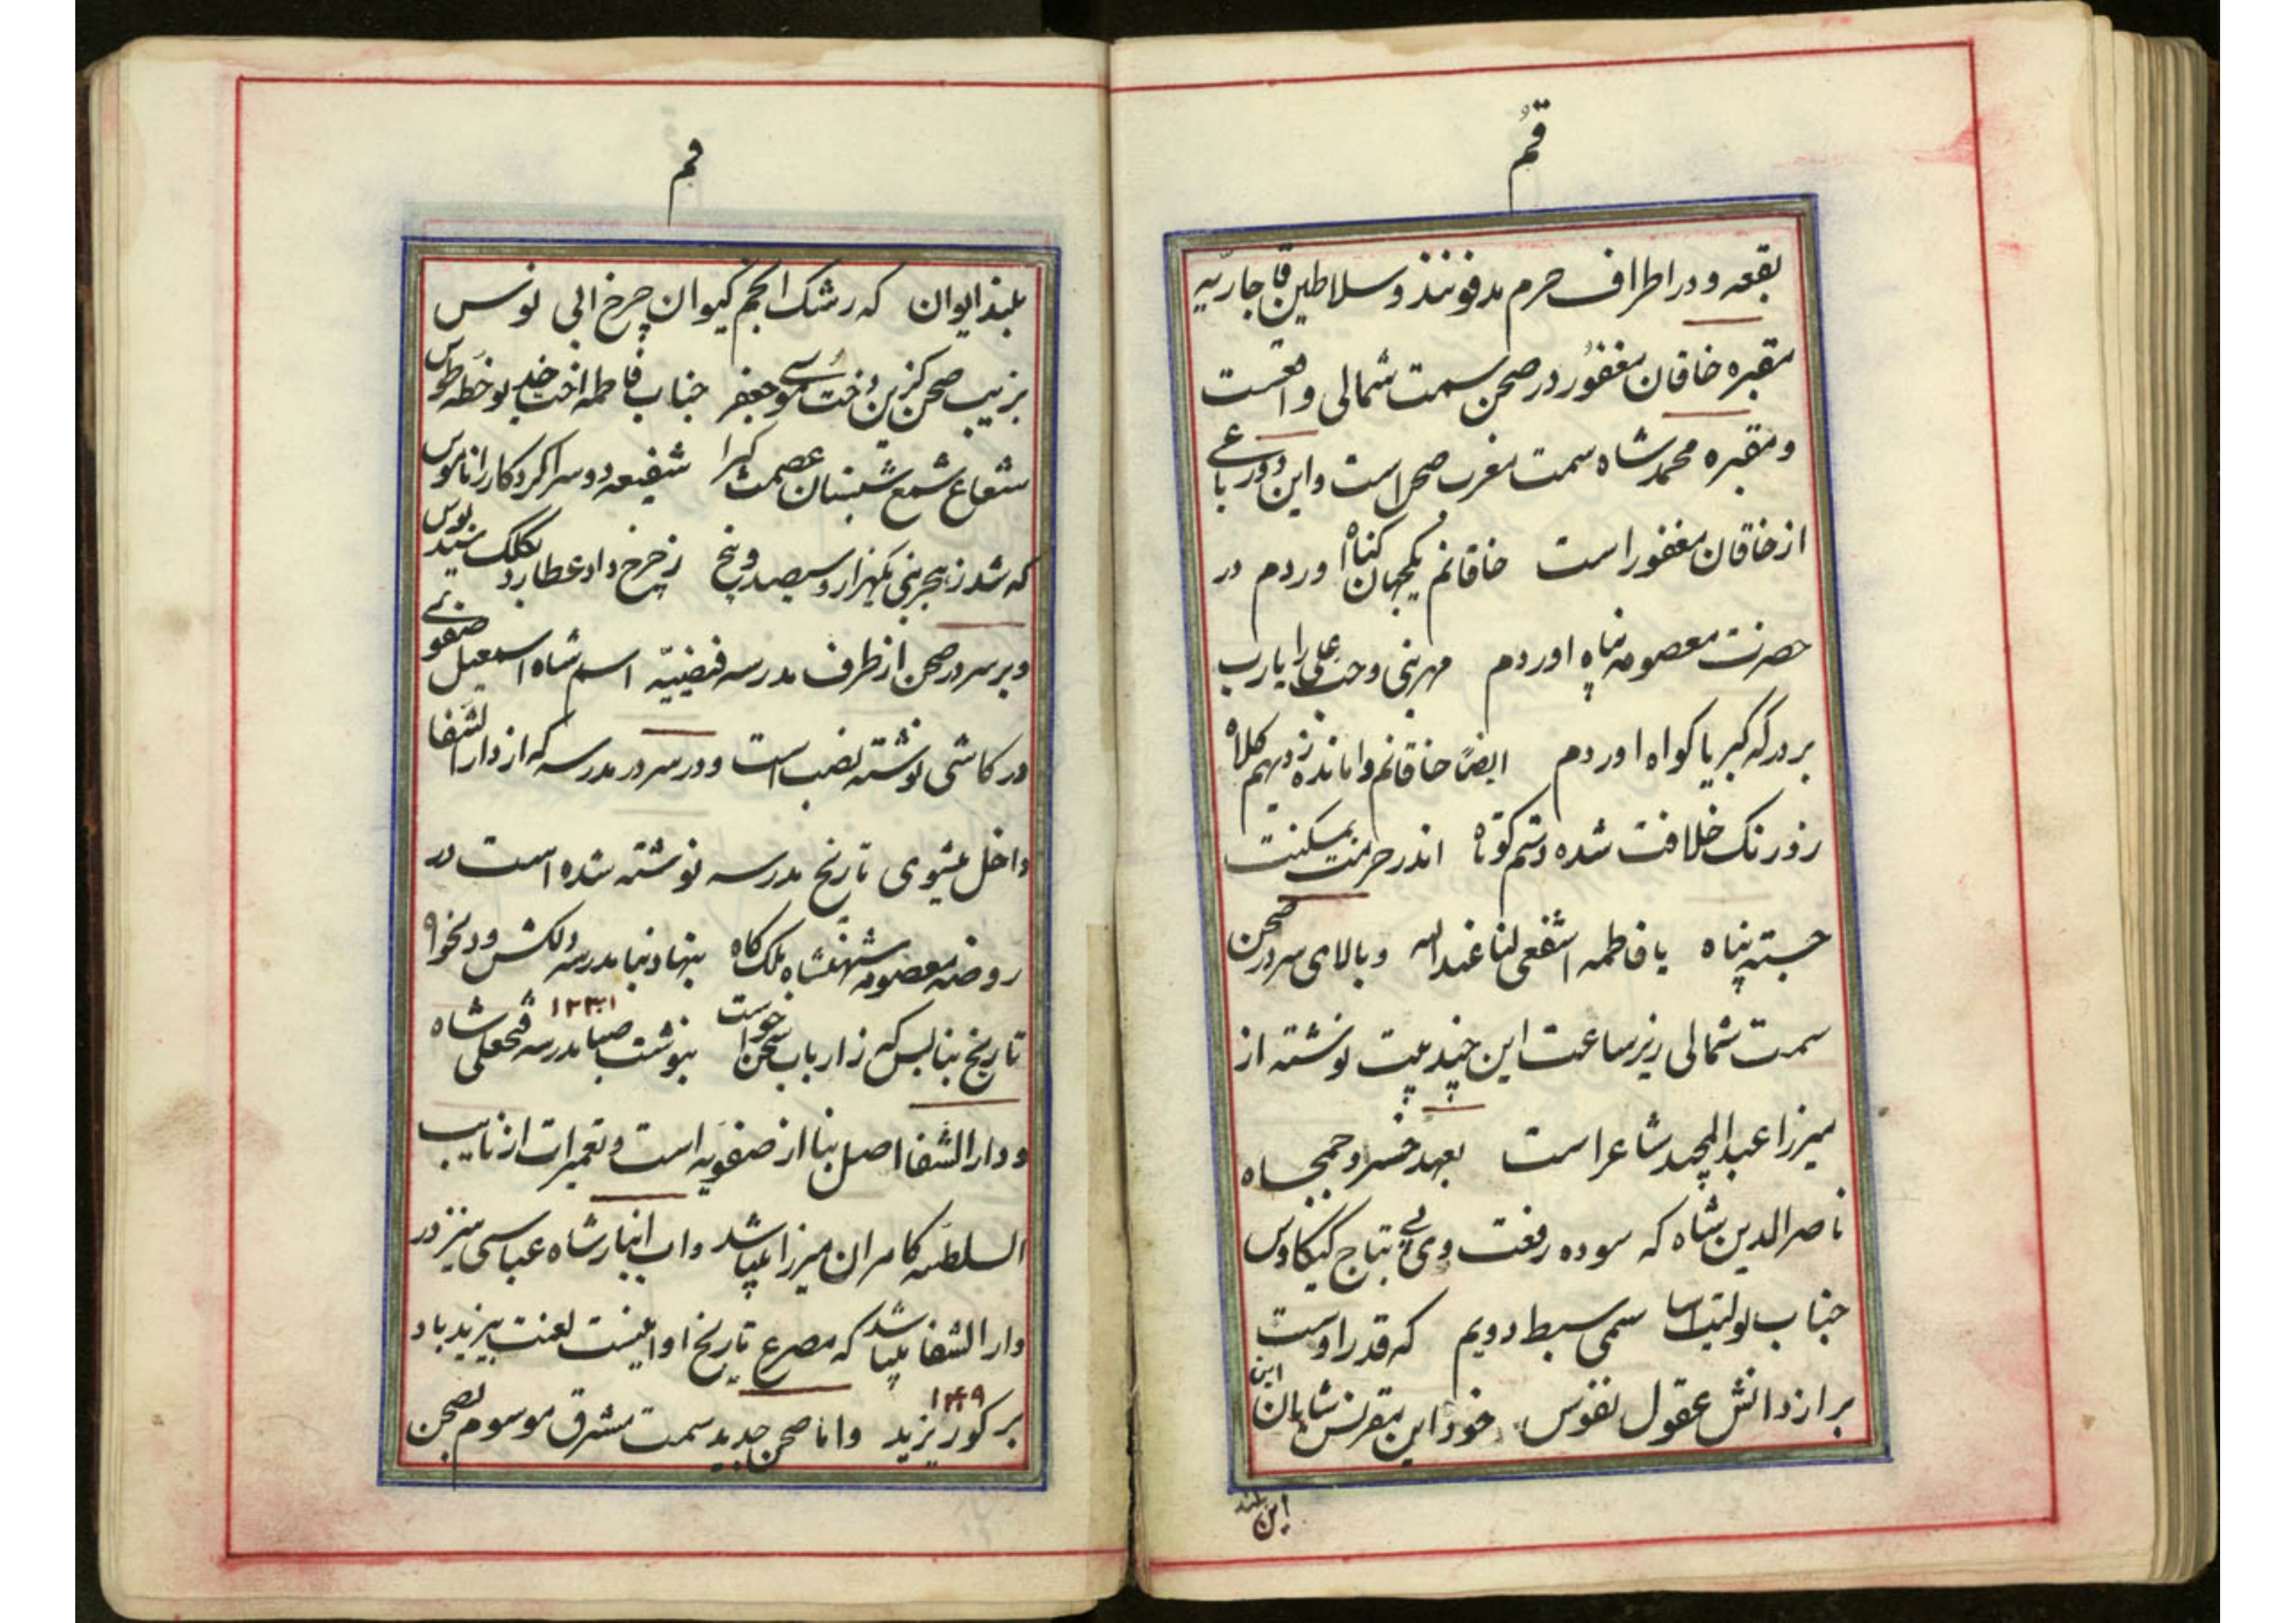 قُم
بقعه و در اطراف حرم مدفونند و سلاطین قاجاریّه
مقبره خاقان مغفُور در صحن سمت شمالی واقعست
و مقبره محمد شاه سمت مغرب صحن است و این دو رباعی
از خاقان مغفور است خاقانم یکجهان کناه اوردم در
حضرت معصومه پناه اوردم مهر نبی و حب علی را یارب
بر درکه کبریا کواه اوردم ایضاً خاقانم وامانده ز دیهیم کلاه
زورنک خلافت شده دستم کوتاه اندر حرمت بمسکنت
جسته پناه یا فاطمه اشفعی لنا عند الله و بالای سردر صحن
سمت شمالی زیر ساعت این چند بیت نوشته از
میرزا عبدالمجید شاعر است بعهد خسرو جمجاه
ناصرالدین شاه که سوده رفعت وی پی بتاج کیکاوس
جناب سمی سبط دویم که قدر اوست
بر از دانش عقول نفوس خود این مقرنس شایان این
این بلند
قم
بلند ایوان که رشک انجم کیوان چرخ ابی نوس
بزیب صحن کزین دخت موسی جعفر جناب فاطمه اخت خدیو خطه طوس
شعاع شمع شبستان عصمت کبرا شفیعه دو سرا کردکار را ناموس
که شد ز هجر نبی یکهزار و سیصد و پنج ز چرخ داد عطارد بکلک بوس
و بر سردر صحن از طرف مدرسه فیضیّه اسم شاه اسمعیل صفوی
در کاشی نوشته نصب است و در سردر مدرسه که از دار الشفا
داخل میشوی تاریخ مدرسه نوشته شده است در
روضه معصومه شهنشاه ملک کاه بنهاد بنا مدرسه دلکش و دلخواه
تاریخ بنا بس که ز ارباب سخن خواست بنوشت صبا مدرسه فتحعلی شاه
و دار الشفا اصل بنا از صفویه است و تعمیرات از نایب
السلطنه کامران میرزا میباشد و اب انبار شاه عباسی نیز در
دار الشفا میباشد که مصرع تاریخ او اینست لعنت بیزید باد
بر کور یزید و اما صحن جدید سمت مشرق موسوم بصحن